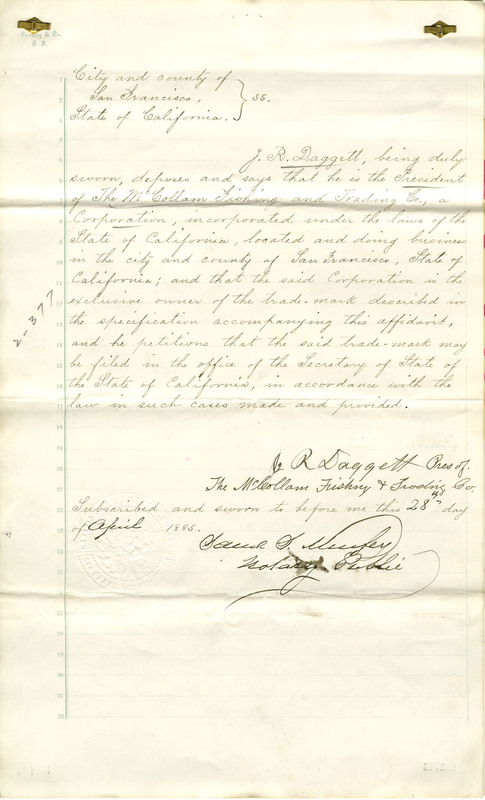 City and county of
San Francisco, } ss.
State of California.
J. R. Daggett, being duly
sworn, deposes and says that he is the President
of The McCollam Fishing and Trading Co., a
Corporation, incorporated under the laws of the
State of California, located and doing business
in the city and county of San Francisco, State of
California; and that the said Corporation is the
exclusive owner of the trade-mark described in
the specification accompanying this affidavit,
and he petitions that the said trade-mark may
be filed in the office of the Secretary of State of
the State of California, in accordance with the
law in such cases made and provided.
2-377
J. R. Daggett Pres of.
The McCollam Fishing & Trading Co.
Subscribed and sworn to before me this 28th day
of April 1885.
Notary Public